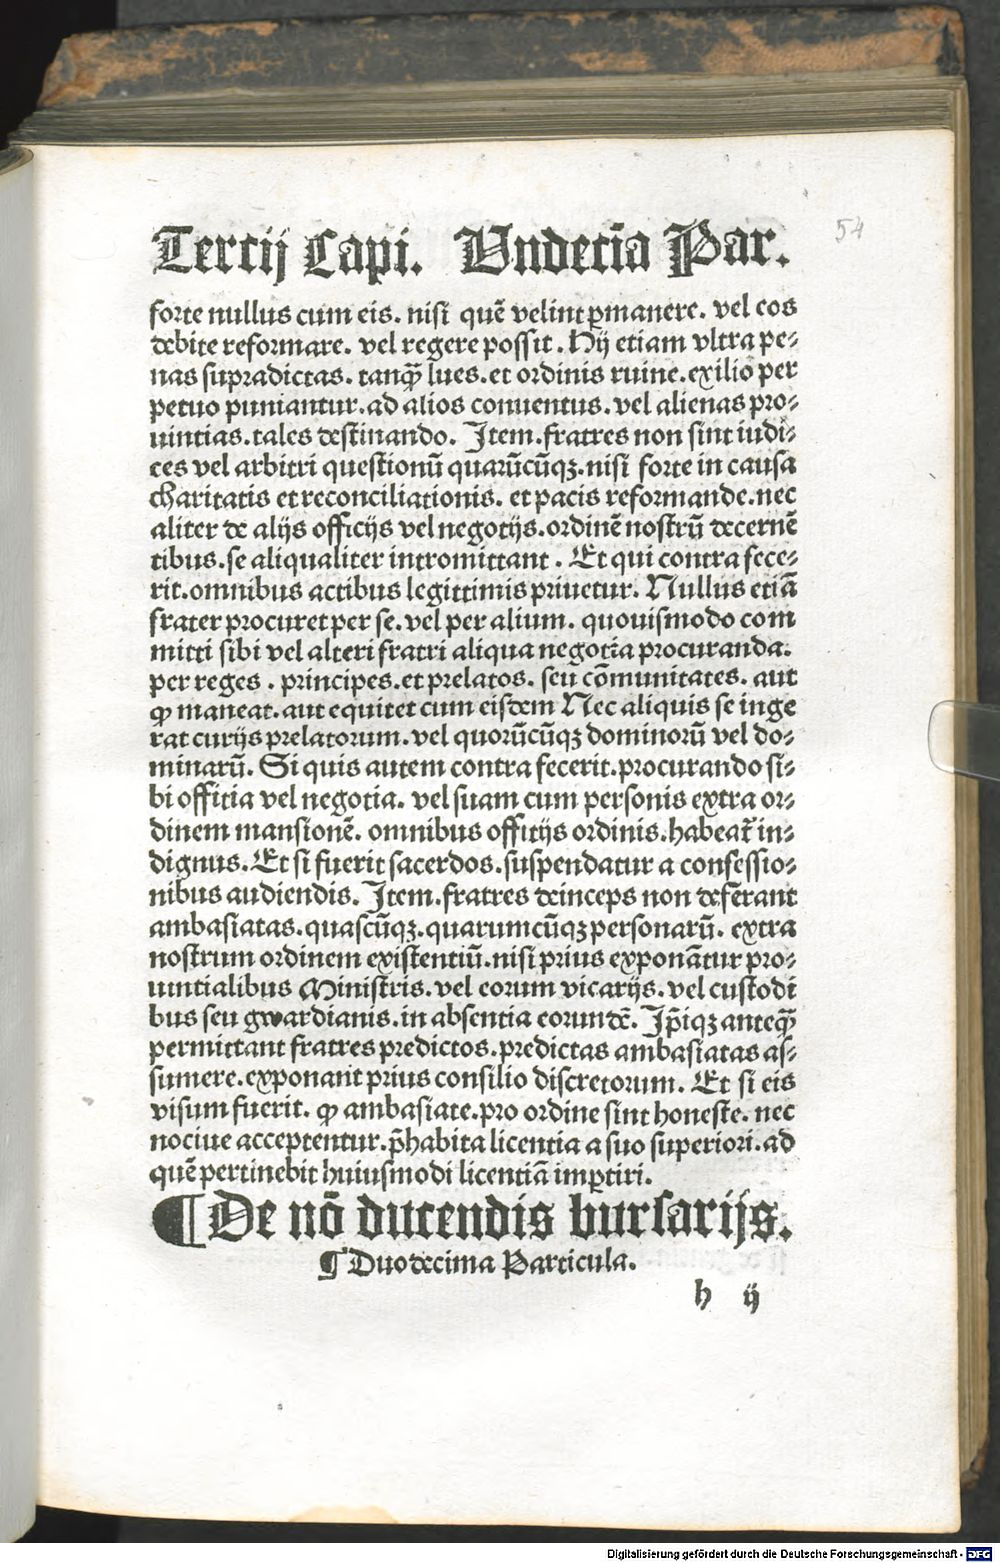 Tertij Capi. Vndeciā Par.
54
forte nullus cum eis. nisi quē velint ꝑmanere. vel eos
debite reformare. vel regere possit. Hij etiam vltra pe⸗
nas supradictas. tanqȝ̄ lues. et ordinis ruine. exilio per
petuo puniantur. ad alios conuentus. vel alienas pro⸗
uintias. tales destinando. Item. fratres non sint iudi⸗
ces vel arbitri questionū quarūcūqȝ. nisi forte in causa
charitatis et reconciliationis. et pacis reformande. nec
aliter de alijs officijs vel negotijs. ordinē nostrū decernē
tibus. se aliqualiter intromittant. Et qui contra fece⸗
rit. omnibus actibus legittimis priuetur. Nullus etiā
frater procuret per se. vel per alium. quouismodo com
mitti sibi vel alteri fratri aliqua negotia procuranda.
per reges. principes. et prelatos. seu cōmunitates. aut
ꝙ maneat. aut equitet cum eisdem Nec aliquis se inge
rat curijs prelatorum. vel quorūcūqȝ dominorū vel do⸗
minarū. Si quis autem contra fecerit. procurando si⸗
bi offitia vel negotia. vel suam cum personis extra or⸗
dinem mansionē. omnibus offitijs ordinis. habeat̄ in⸗
dignus. Et si fuerit sacerdos. suspendatur a confessio⸗
nibus audiendis. Item. fratres deinceps non deferant
ambasiatas. quascūqȝ. quarumcūqȝ personarū. extra
nostrum ordinem existentiū. nisi prius exponātur pro⸗
uintialibus Ministris. vel eorum vicarijs. vel custodi
bus seu gwardianis. in absentia eorundē. Ip̄iqȝ anteqȝ̄
permittant fratres predictos. predictas ambasiatas as⸗
sumere. exponant prius consilio discretorum. Et si eis
visum fuerit. ꝙ ambasiate. pro ordine sint honeste. nec
nociue acceptentur. p̄habita licentia a suo superiori. ad
quē pertinebit huiusmodi licentiā imꝑtiri.
¶ De nō ducendis bursarijs.
¶ Duodecima Particula.
h ij
Digitalisierung gefördert durch die Deutsche Forschungsgemeinschaft - DFG